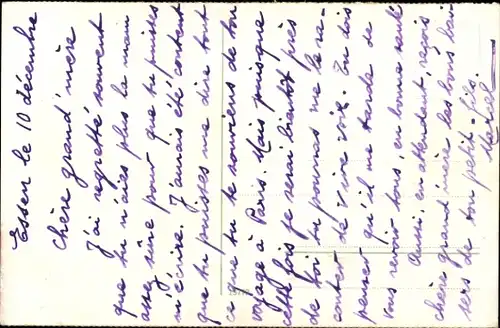 Essen le 10 décembre
Chère grand'mère
J'ai regretté souvent
que tu n'aies plus la main
assez sûre pour que tu puisses
m'écrire. J'aurais été content
que tu puisses me dire tout
ce que tu te souviens de ton
voyage à Paris. Mais puisque
cette fois je serai bientôt près
de toi tu pourras me le ra-
conter de vive voix. Tu dois
penser qu'il me tarde de
vous revoir tous, en bonne santé
Aussi, en attendant, reçois
chère grand'mère les bons bai-
sers de ton petit-fils.